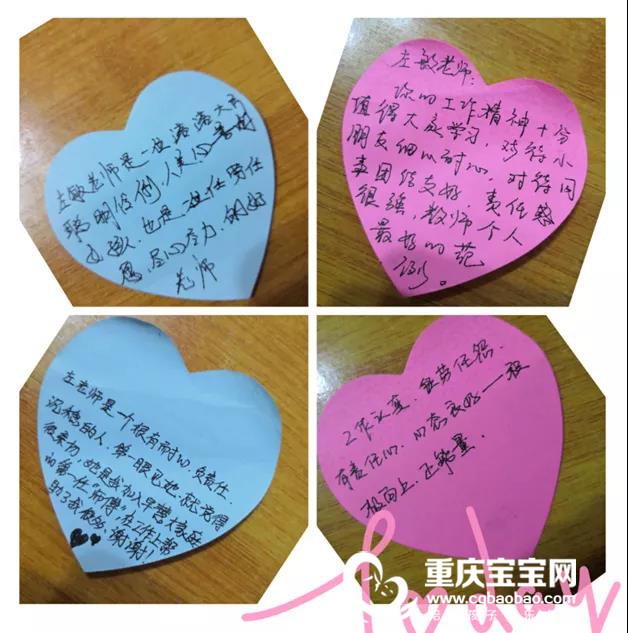 左敏老师是一位落落大方
聪明伶俐、人美心善的
女孩、也是一位任劳任
怨、尽心尽力的好
老师
左敏老师:
你的工作精神十分
值得大家学习,对待小
朋友细心耐心,对待同
事团结友好,责任感
很强,教师个人
最好的范
例。
左老师是一个很有耐心、负责任、
沉稳的人,第一眼见她就觉得
很亲切,她是我加入早慧大家庭
的第一任"师傅",在工作上帮
助了我很多,谢谢!
工作认真、任劳任怨、
有责任心、心态良好、一路
积极向上、正能量.
today
重庆宝宝网
www.cqbaobao.com